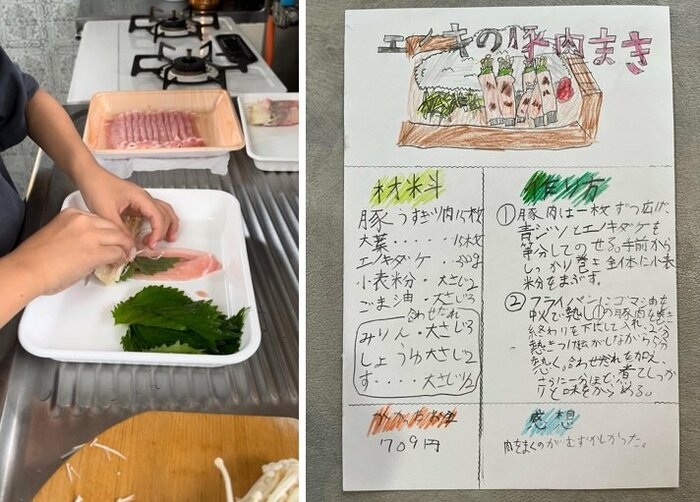 エノキの豚肉まき
材料
豚うすぎり肉15枚
大葉・・・・・15枚
エノキダケ・・300g
小麦粉・大さじ2
ごま油・大さじ
合わせたれ
みりん・大さじ3
しょうゆ大さじ2
す・・・・大さじ1/2
かかったお金
709円
作り方
①豚肉は一枚ずつ広げ、
青ジソとエノキダケも
等分してのせる。手前から
しっかり巻き全体に小麦
粉をまぶす。
②フライパンにゴマ油を
中火で熱し①の豚肉を巻き
終わりを下にして入れ、2分
熱きつけ転がしながら5分
熱く。合わせだれを加え、
さらに一分ほど煮てしっか
りと味をからめる。
感想
肉をまくのがむずかしかった。